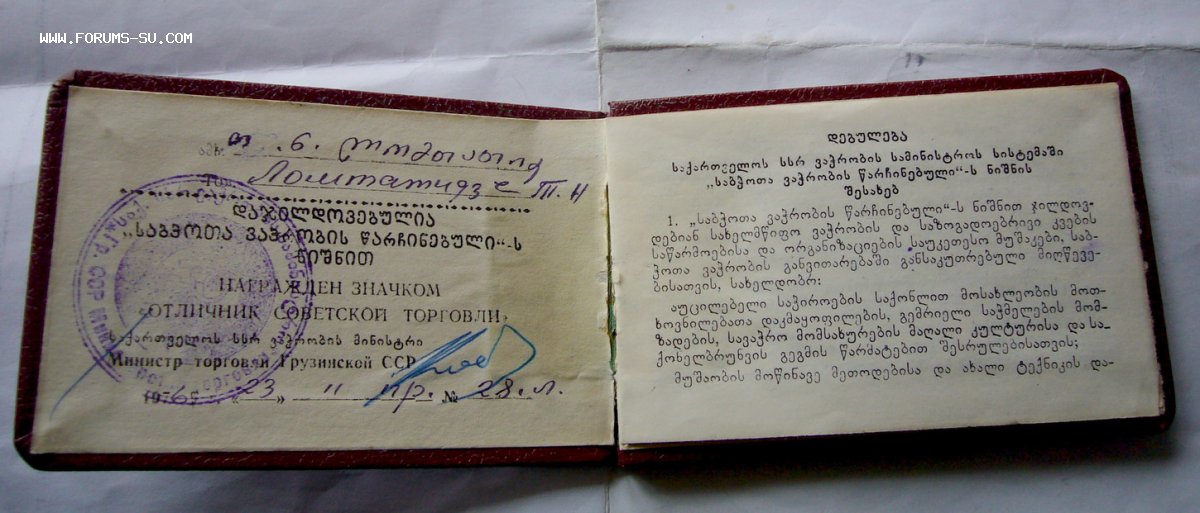 WWW.FORUMS-SU.COM
ამხ. თ. ნ. ლომთათიძე
Тов. Ломтатидзе Т. Н
დაჯილდოვებულია
„საბჭოთა ვაჭრობის წარჩინებული“-ს
ნიშნით
НАГРАЖДЕН ЗНАЧКОМ
«ОТЛИЧНИК СОВЕТСКОЙ ТОРГОВЛИ»
საქართველოს სსრ ვაჭრობის მინისტრი
Министр торговли Грузинской ССР
«23» № 28.
დებულება
საქართველოს სსრ ვაჭრობის სამინისტროს სისტემაში
„საბჭოთა ვაჭრობის წარჩინებული“-ს ნიშნის
შესახებ
1. „საბჭოთა ვაჭრობის წარჩინებული“-ს ნიშნით ჯილდოვ-
დებიან სახელმწიფო ვაჭრობის და საზოგადოებრივი კვების
საწარმოებისა და ორგანიზაციების საუკეთესო მუშაკები, საბ-
ჭოთა ვაჭრობის განვითარებაში განსაკუთრებული მიღწევე-
ბისათვის, სახელდობრ:
აუცილებელი საჭიროების საქონლით მოსახლეობის მოთ-
ხოვნილებათა დაკმაყოფილების, გემრიელი საჭმელების მომ-
ზადების, სავაჭრო მომსახურების მაღალი კულტურისა და სა-
ქონელბრუნვის გეგმის წარმატებით შესრულებისათვის;
მუშაობის მოწინავე მეთოდებისა და ახალი ტექნიკის და-